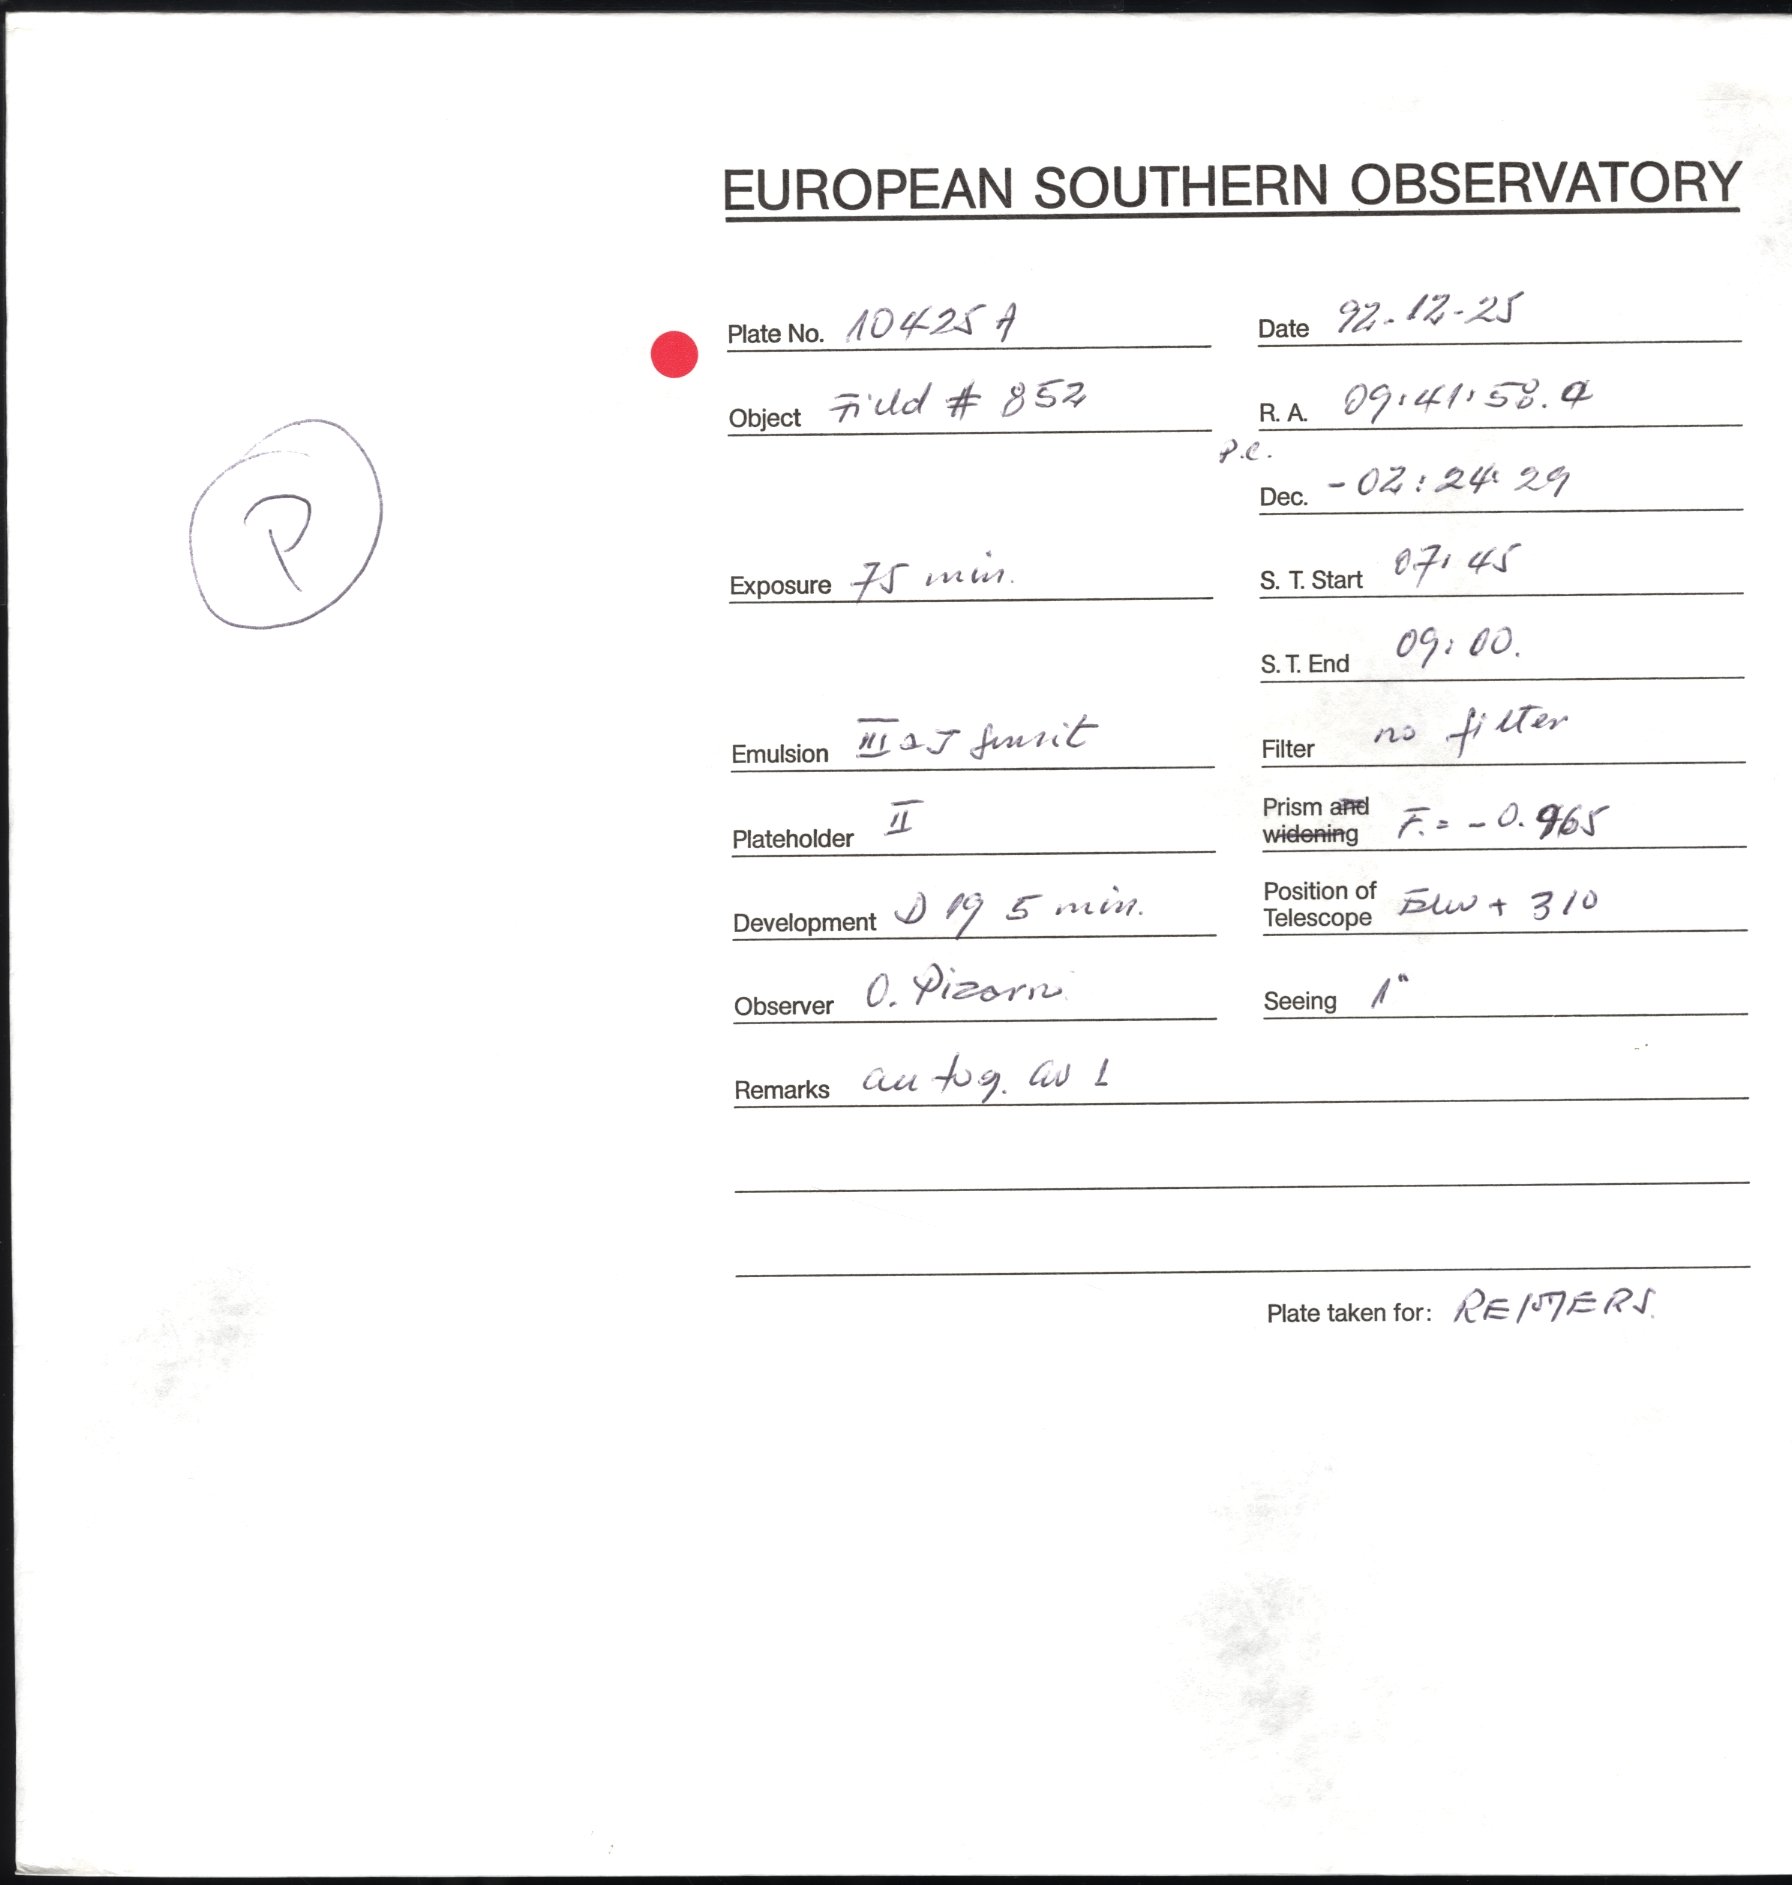 EUROPEAN SOUTHERN OBSERVATORY
Plate No. 10425 A
Date 92-12-25
Object Field # 852
R. A. 09:41:58.4
P.C.
Dec. -02:24:29
P
Exposure 75 min.
S. T. Start 07:45
S. T. End 09:00.
Emulsion IIIaJ sensit
Filter no filter
Plateholder II
Prism and widening F. = -0.965
Development D 19 5 min.
Position of Telescope + 310
Observer O. Pizarro
Seeing 1"
Remarks autog.
Plate taken for: REIMERS.